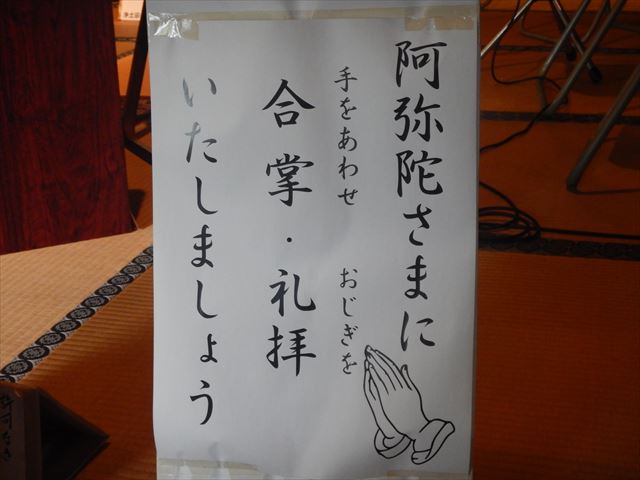 阿弥陀さまに
手をあわせ おじぎを
合掌・礼拝
いたしましょう